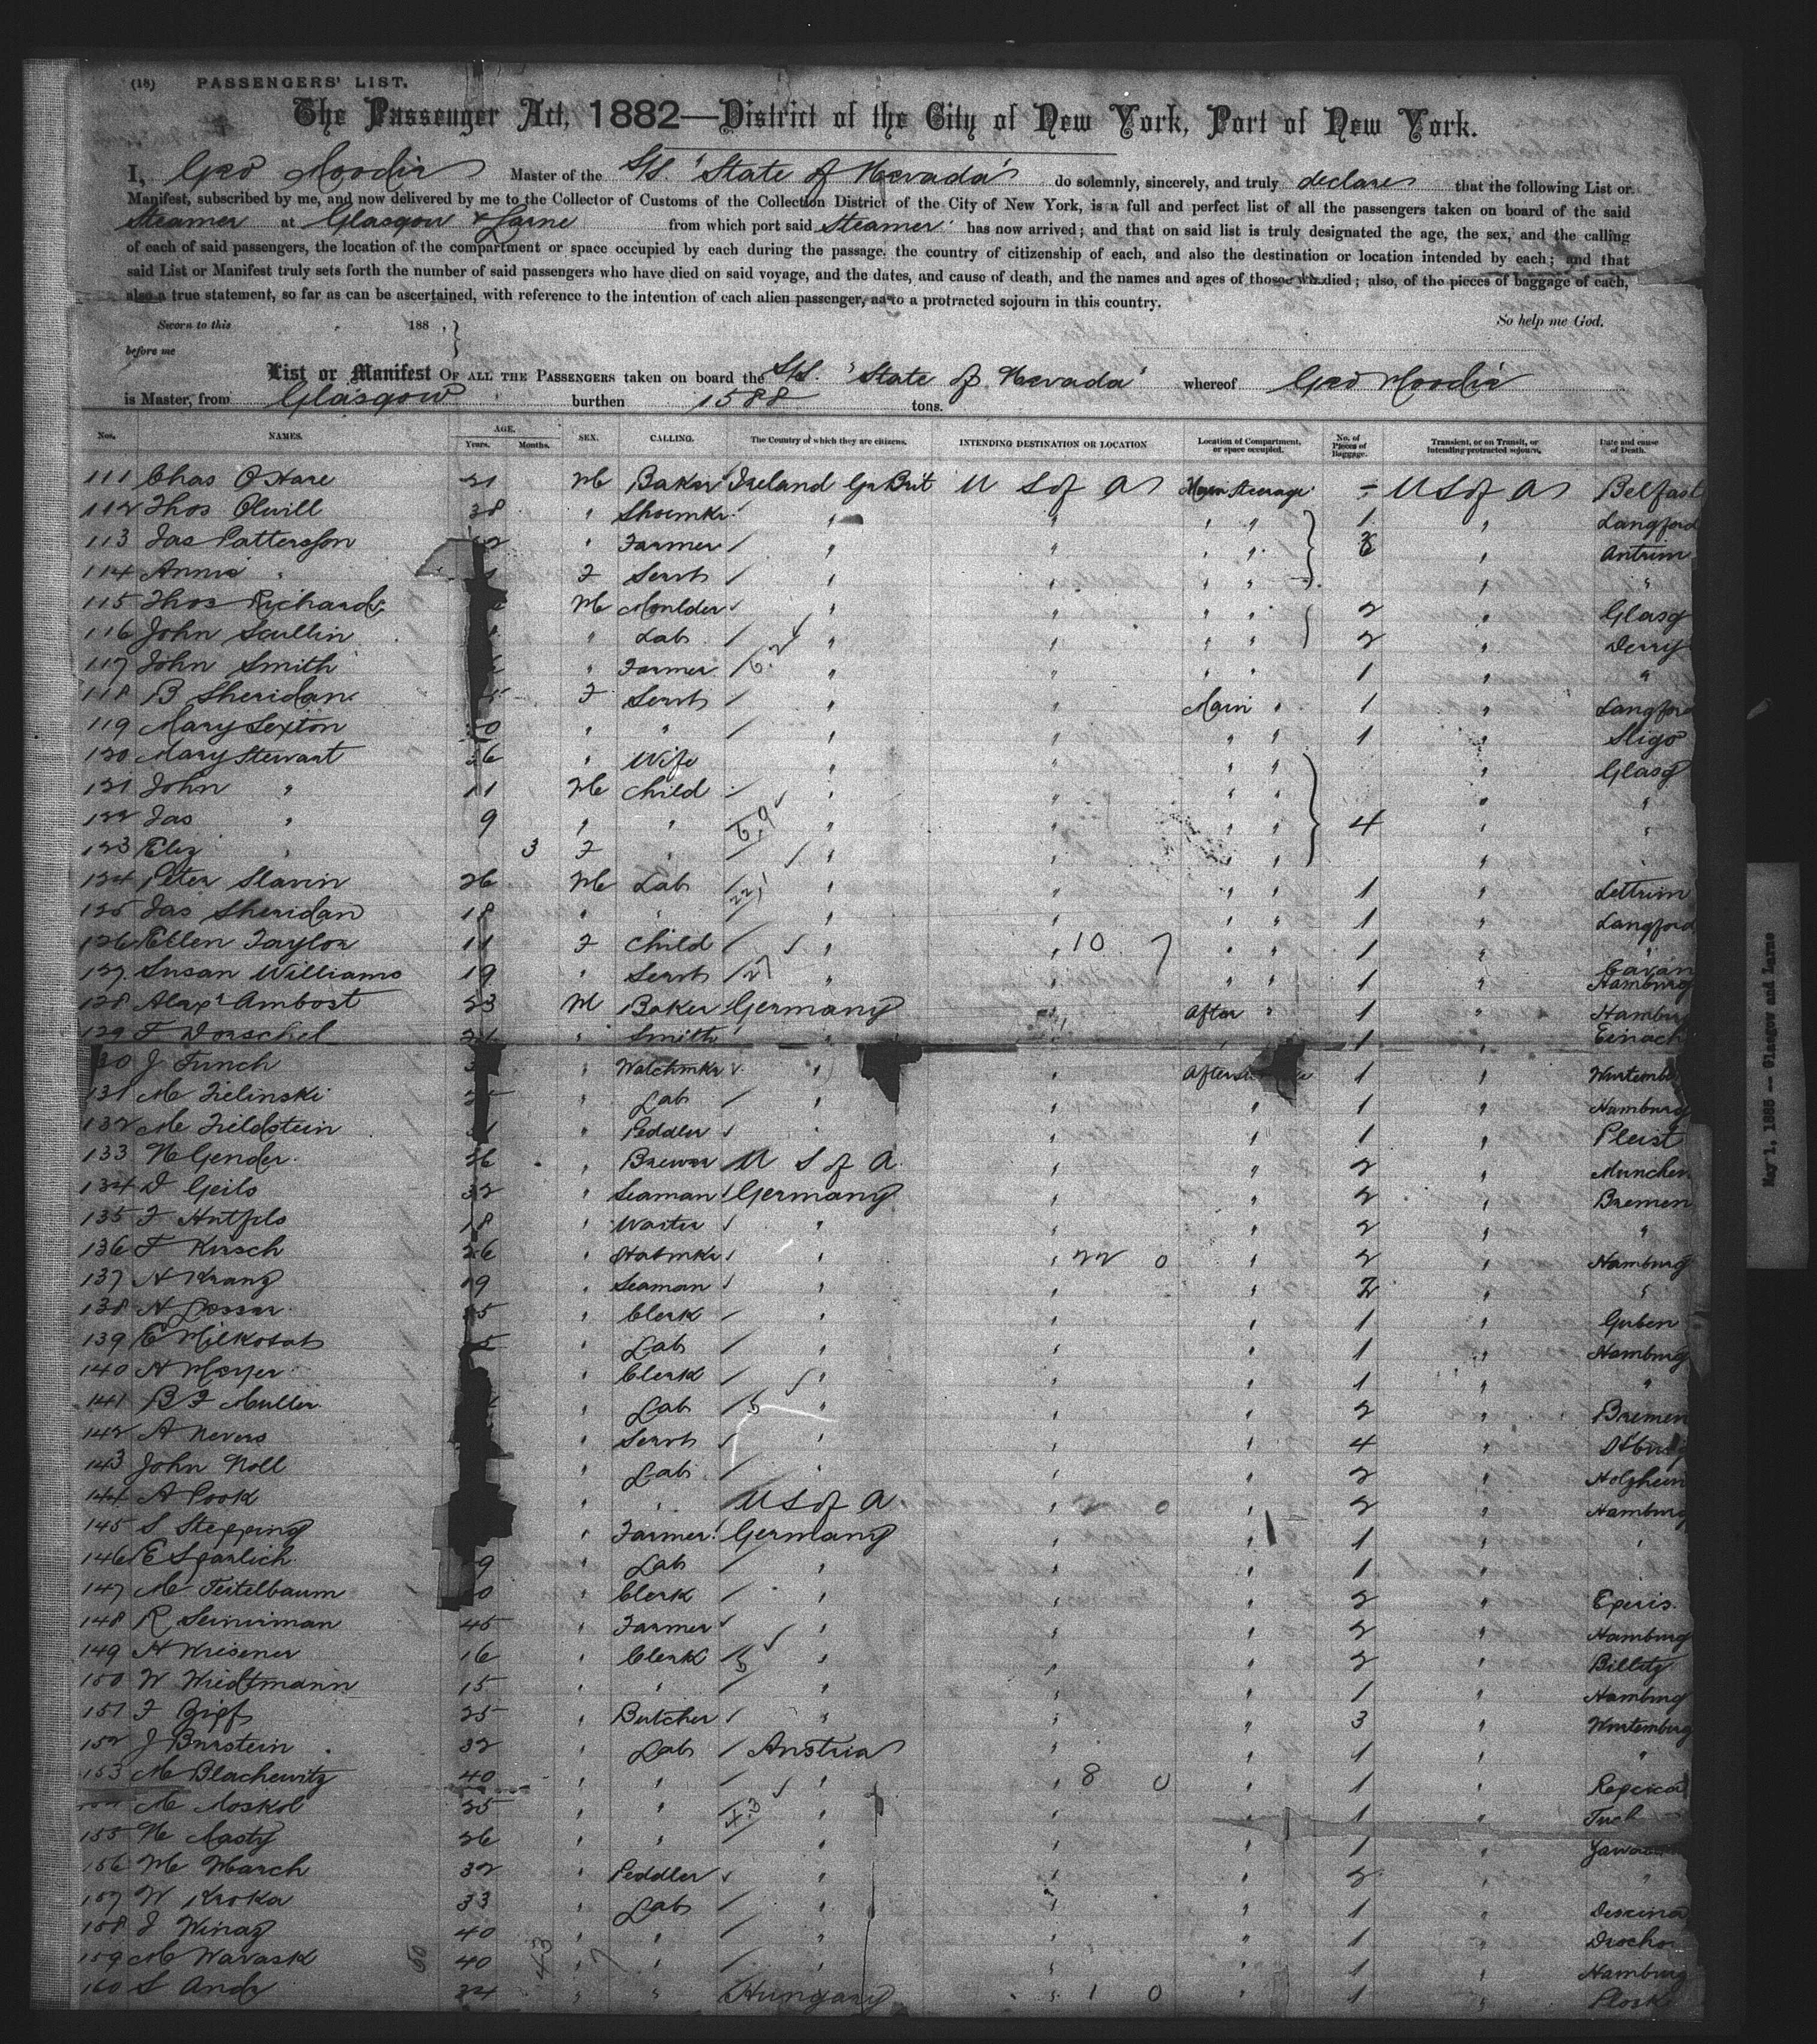 (18) PASSENGERS' LIST.
The Passenger Act, 1882—District of the City of New York, Port of New York.
I, Geo Moodie Master of the S/S. "State of Nevada" do solemnly, sincerely, and truly declare that the following List or
Manifest, subscribed by me, and now delivered by me to the Collector of Customs of the Collection District of the City of New York, is a full and perfect list of all the passengers taken on board of the said
Steamer at Glasgow & Larne from which port said Steamer has now arrived; and that on said list is truly designated the age, the sex, and the calling
of each of said passengers, the location of the compartment or space occupied by each during the passage, the country of citizenship of each, and also the destination or location intended by each; and that
said List or Manifest truly sets forth the number of said passengers who have died on said voyage, and the dates, and cause of death, and the names and ages of those who died; also, of the pieces of baggage of each,
also a true statement, so far as can be ascertained, with reference to the intention of each alien passenger, as to a protracted sojourn in this country.
Sworn to this 188 , } So help me God.
before me
List or Manifest OF ALL THE PASSENGERS taken on board the S/S. "State of Nevada" whereof Geo Moodie
is Master, from Glasgow burthen 1588 tons.
Nos. NAMES. AGE. Years. Months. SEX. CALLING. The Country of which they are citizens. INTENDING DESTINATION OR LOCATION Location of Compartment, or space occupied. No. of Pieces of Baggage. Transient, or on Transit, or intending protracted sojourn. Date and cause of Death.
111 Chas O'Hare 21 M Baker Ireland Gr Brit U S of A Main Steerage - U S of A Belfast
112 Thos Clwill 38 " Shoemkr " " " " 1 " Langford
113 Jas Patterson " Farmer " " " " " Antrim
114 Annie " F Servt " " " " " "
115 Thos Richards M Moulder " " " " 2 " Glasg
116 John Scullin " Lab " " " " 2 " Derry
117 John Smith " Farmer " " " " 1 " "
118 B Sheridan F Servt " " Main " 1 " Langford
119 Mary Sexton " " " " " " 1 " Sligo
120 Mary Stewart 36 " Wife " " " " " Glasg
121 John " 11 M Child " " " " " "
122 Jas " 9 " " " " " " 4 " "
123 Eliz " 3 F " " " " " " "
124 Peter Slavin 26 M Lab " " " " 1 " Lettrim
125 Jas Sheridan 18 " " " " " " 1 " Langford
126 Ellen Taylor 11 F Child " " 10 " " 1 " "
127 Susan Williams 19 " Servt " " " " 1 " Cavan
Hamburg
128 Alexr Ambost 23 M Baker Germany " After " 1 " Hamburg
129 F Dorschel " Smith " " 1 "
130 J Funch " Watchmkr " 1 " Wurtemb
131 M Zielinski " Lab " " " 1 " Hamburg
132 M Fieldstein " Peddler " " " 1 " Pleist
133 N Gender 26 " Brewer U S of A " " 2 " Munchen
134 D Geils 32 " Seaman Germany " " 2 " Bremen
135 F Hutfils 18 " Waiter " " " 2 " "
136 F Kirsch 26 " Hatmkr " " 22 0 " 2 " Hamburg
137 H Kranz 19 " Seaman " " " 2 " "
138 H Lossar " Clerk " " " 1 " Guben
139 E Milkosat " Lab " " " 1 " Hamburg
140 H Meyer " Clerk " " " 1 " "
141 B F Muller " Lab " " " 2 " Bremen
142 A Nevers " Servt " " " 4 "
143 John Noll " Lab " " " 2 " Holzheim
144 A Pook " " U S of A " " 2 " Hamburg
145 S Stepping " Farmer Germany " " 1 " "
146 E Sparlich " Lab " " " 1 " "
147 M Teitelbaum " Clerk " " " 2 " Eperis
148 R Seniriman 45 " Farmer " " " 2 " Hamburg
149 H Wrisener 16 " Clerk " " " 2 " Billitz
150 W Wiedtmann 15 " " " " " 1 " Hamburg
151 F Zipf 25 " Butcher " " " 3 " Wurtemburg
152 J Burstein 32 " Lab Austria " " 1 " "
153 M Blachewitz 40 " " " " 8 0 " 1 "
M Moskol 25 " " " " " 1 " Tuch
155 N Masty 26 " " " " " 1 "
156 M March 32 " Peddler " " " 2 " "
157 W Kroka 33 " Lab " " " 1 "
158 J Winaz 40 " " " " " 1 "
159 M Wavask 40 " " " " " 1 " Hamburg
160 S Andr 24 " " Hungary " 1 0 " 1 "
May 1, 1885 -- Glasgow and Larne